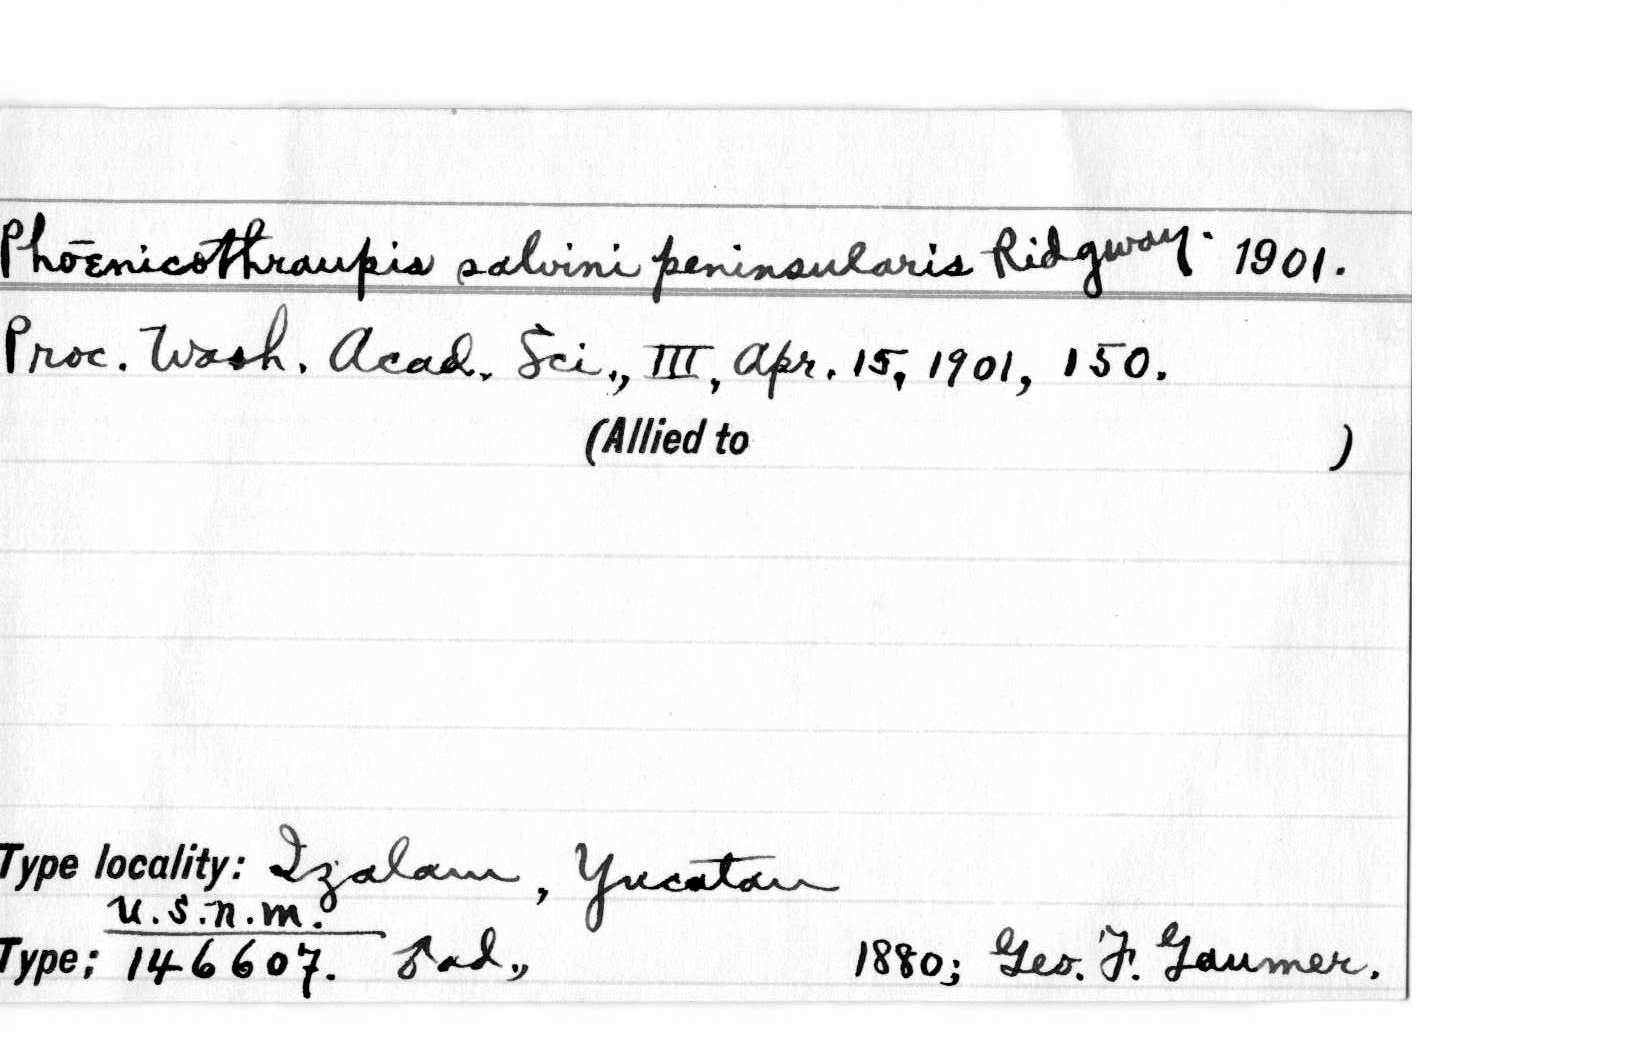 Phoenicothraupis salvini peninsularis Ridgway. 1901.
Proc. Wash. Acad. Sci., III, Apr. 15, 1901, 150.
(Allied to )
Type locality: Izalam, Yucatan
U.S.N.M.
Type; 146607. ♂ ad., 1880; Geo. F. Gaumer.